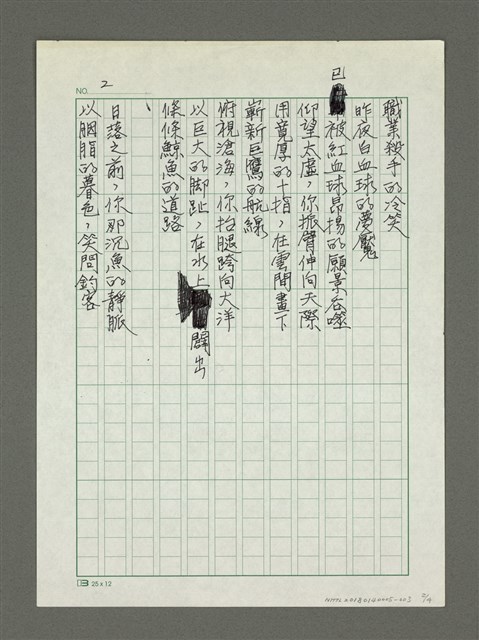 NO. 2
職業殺手的冷笑
昨夜白血球的夢魘
已被紅血球昂揚的願景吞噬
仰望太虛，你振臂伸向天際
用寬厚的十指，在雲間畫下
嶄新巨鷹的航線
俯視滄海，你抬腿跨向大洋
以巨大的腳趾，在水上闢出
條條鯨魚的道路
、
日落之前，你那沉魚的靜脈
以胭脂的暮色，笑問釣客
25 x 12
2/4